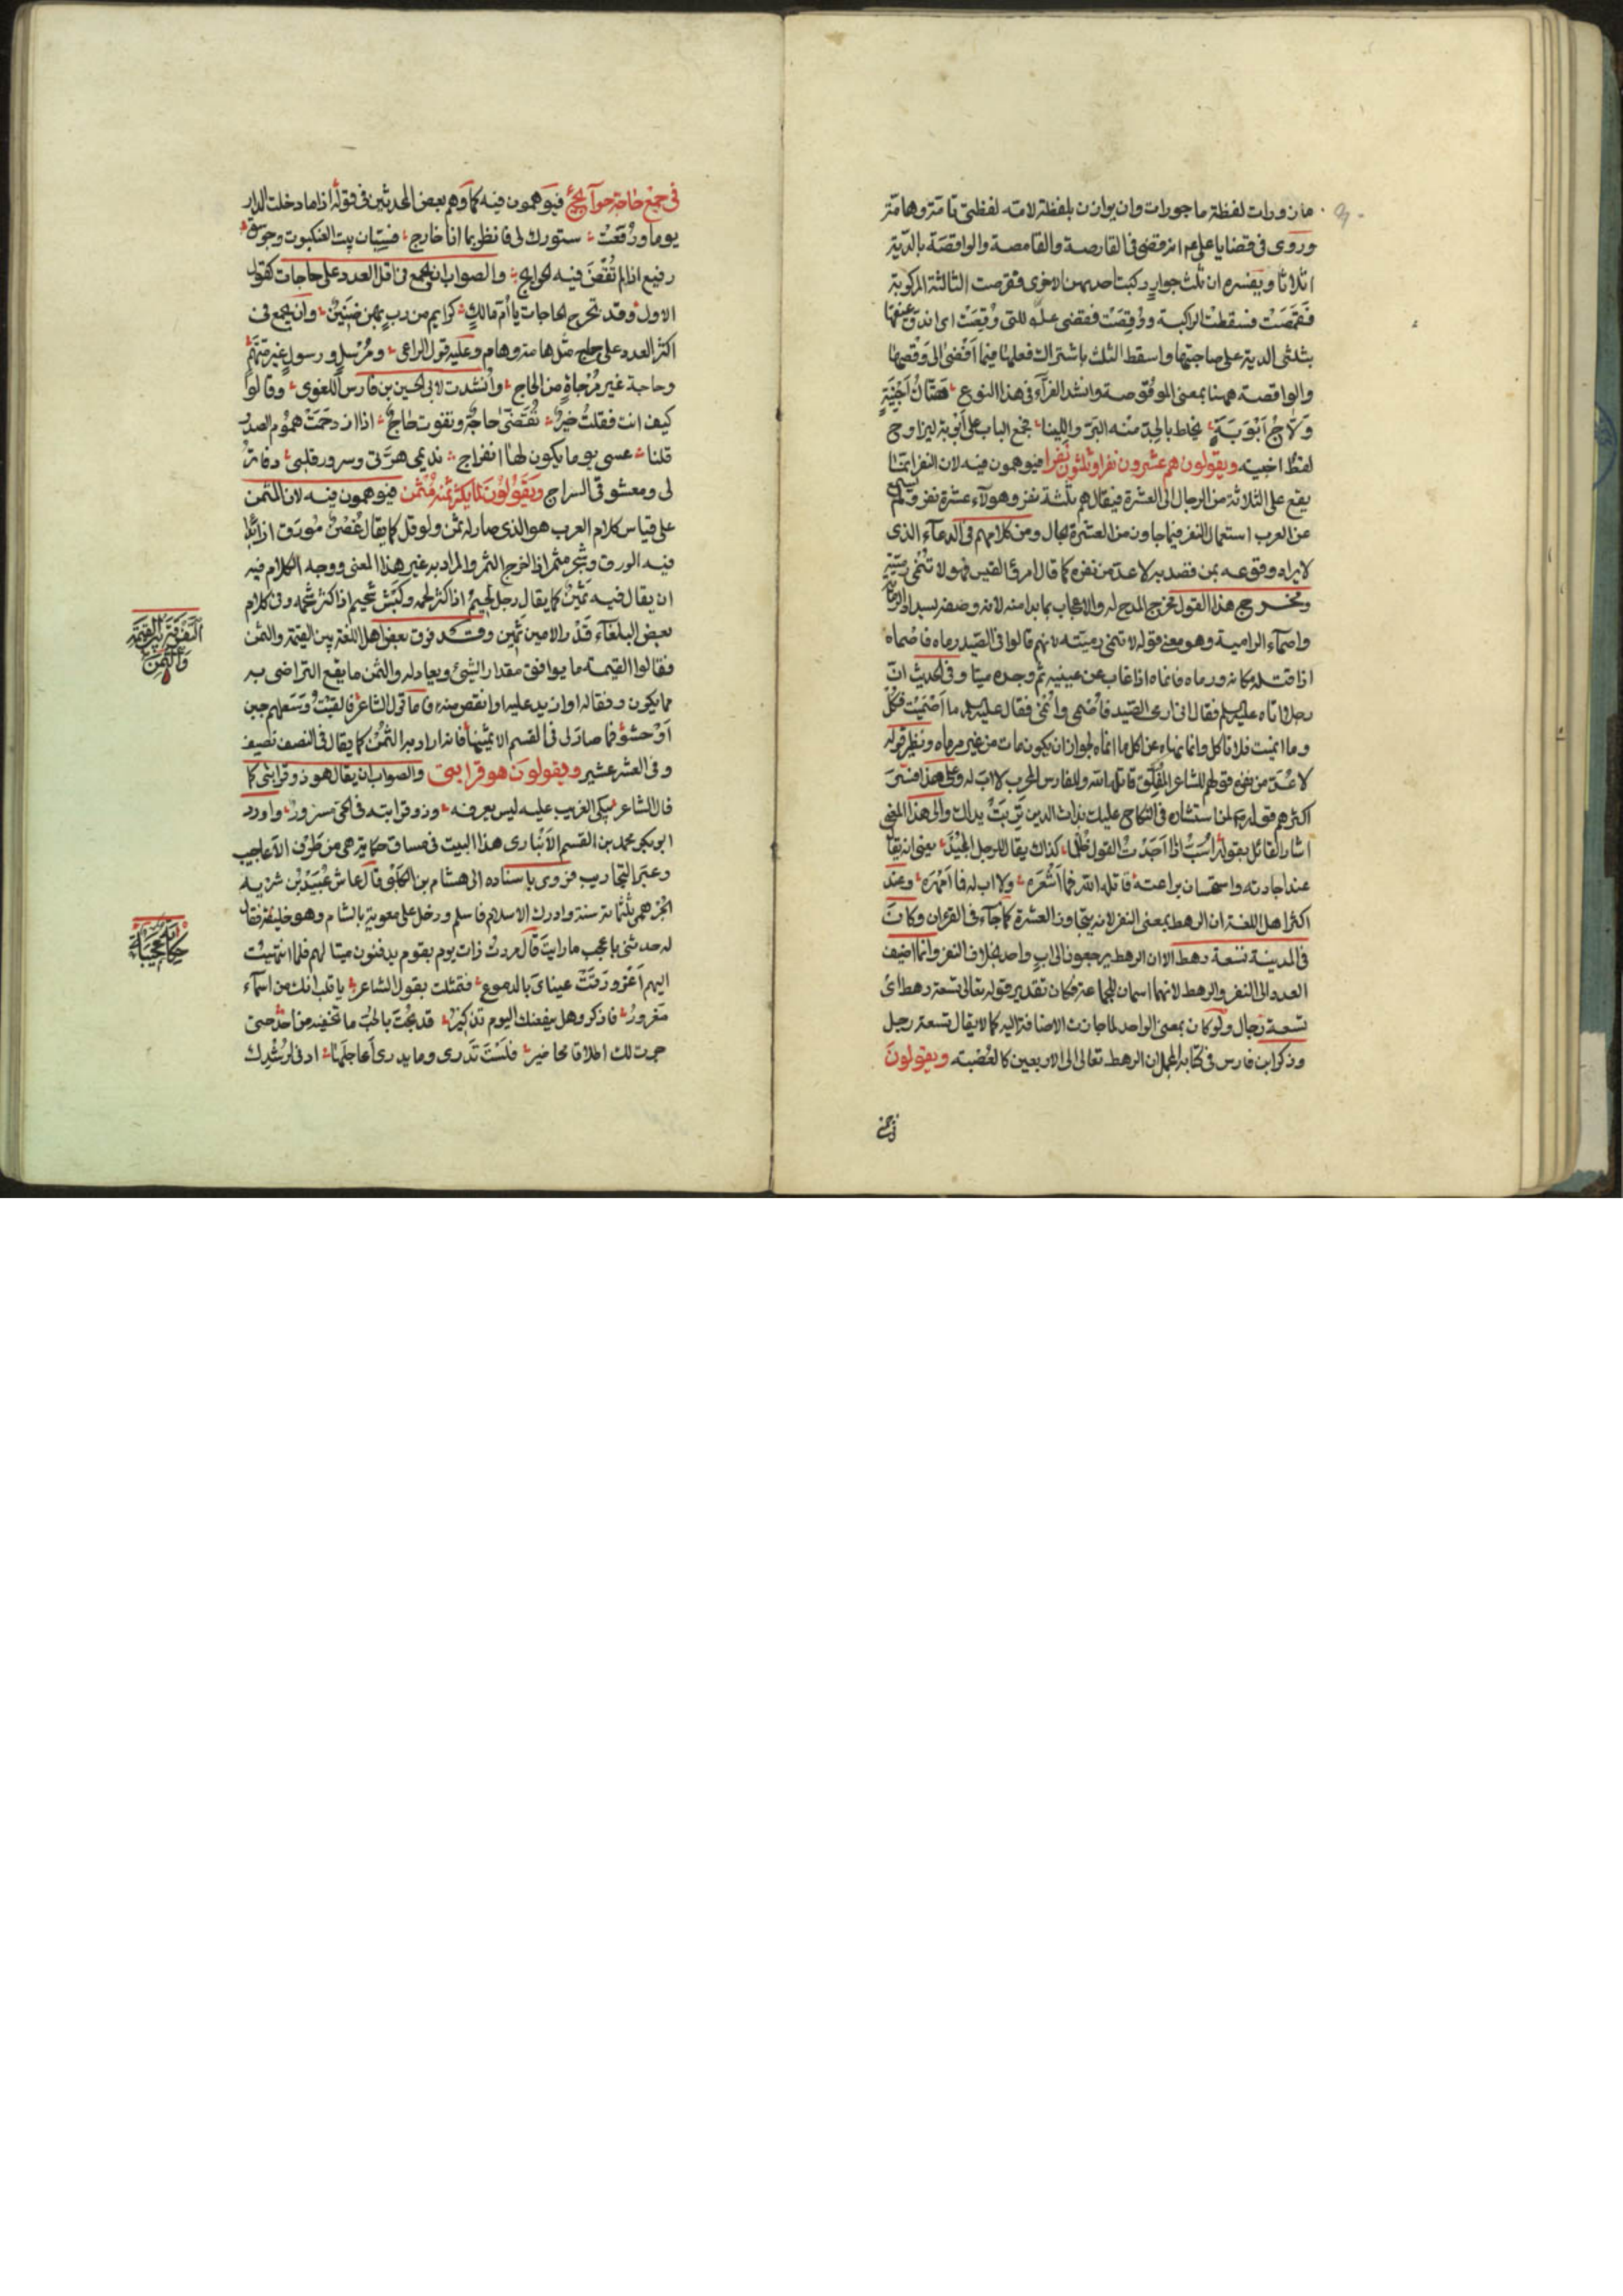 مازورات لفظة ماجورات وان يوازن بلفظة لامة لفظتى تامة وهامة
وروى فى قضايا على عم انه قضى فى القارصة والقامصة والواقصة بالدية
اثلاثا وتفسيره ان ثلث جوار ركبت احديهن الاخرى فقرصت الثالثة المركوبة
فقمصت فسقطت الراكبة ووُقِصَت فقضى للتى وُقِصَتْ اى اندق عنقها
بثلثى الدية على صاحبتها واسقط الثلث باشتراك فعلها فيما أفضى الى وقصها
والواقصة ههنا بمعنى الموقوصة وانشد الفرآء فى هذا النوع هتّاك أخبيةٍ
ولّاج أبوبةٍ يخلط بالجدّ منه البرّ واللينا فجمع الباب على أبوبة ليزاوج
لفظ اخبية ويقولون هم عشرون نفرا وثلثون نفرا فيوهمون فيه لان النفر انما
يقع على الثلاثة من الرجال الى العشرة فيقال هم ثلثة نفر وهولآء عشرة نفر ولم يسمع
عن العرب استعمال النفر فيما جاوز من العشرة بحال ومن كلامهم فى الدعآء الذى
لا يراد وقوعه بمن قصد به لا عد من نفره كما قال امرئ القيس فهو لا تنمى رميته
ومخرج هذا القول مخرج المدح له والاعجاب بما بدا منه لانه وصفه بسداد الرماية
واصمآء الرامية وهو معنى قوله لا تنمى رميته لانهم قالوا فى الصيد رماه فاصماه
اذا قتله مكانه ورماه فانماه اذا غاب عن عينيه ثم وجده ميتا وفى الحديث انّ
رجلا اتاه عليه السلم فقال انى ارمى الصيد فاُصمى واُنمى فقال عليه السلم ما أصميت فكُلْ
وما انميت فلا تاكل وانما نهاه عن اكل ما انماه لجواز ان يكون مات من غير مرماه ونظير قوله
لا عدّ من نفره قولهم للشاعر المُفلِق قاتله الله وللفارس المحرب لا اب له وعلى هذا فسّر
اكثرهم قوله لمن استشاره فى النكاح عليك بذات الدين تربتْ يداك والى هذا المعنى
اشار القائل بقوله أُسَبّ اذا أجدتُ القول ظلما كذاك يقال للرجل المجيد يعنى انه يقال
عند اجادته واستحسان براعته قاتله الله فما أشعره ولا اب له فما أمهره وعند
اكثر اهل اللغة ان الرهط بمعنى النفر لانه يتجاوز العشرة كما جآء فى القرءان وكان
فى المدينة تسعة رهط الا ان الرهط يرجعون الى ابٍ واحد بخلاف النفر وانما اضيف
العدد الى النفر والرهط لانهما اسمان للجماعة فكان تقدير قوله تعالى تسعة رهط اى
تسعة رجال ولو كان بمعنى الواحد لما جازت الاضافة اليه كما لا يقال تسعة رجل
وذكر ابن فارس فى كتابه المجمل ان الرهط تعالى الى الاربعين كالعُصبة ويقولون
فى جمع
فى جمع حاجة حوآئج فيوهمون فيه كما وهم بعض المحدثين فى قوله اذا ما دخلت الدار
يوما ورُفعَتْ ستورك لى فانظر بما انا خارج فسيّان بيت العنكبوت وجوسق
رفيع اذا لم تُقضَ فيه الحوائج والصواب ان يجمع فى اقل العدد على حاجات كقول
الاول وقد تخرج الحاجات يا أم مالك كرايم من ربٍ بهن ضنين وان يجمع فى
اكثر العدد على حاج مثل هامة وهام وعليه قول الراعى ومُرسِلٍ ورسولٍ غير متّهم
وحاجة غير مزجاةٍ من الحاج وأنشدت لابى الحسين بن فارس اللغوى وقالوا
كيف انت فقلتُ خيرٌ تُقَضّى حاجة وتفوت حاج اذا ازدحمت هموم الصدر
قلنا عسى يوما يكون لها انفراج نديمى هرّتى وسرور قلبى دفاتر
لى ومعشوقى السراج ويقولون لما يكثر ثمنه مُثمن فيوهمون فيه لان المثمن
على قياس كلام العرب هو الذى صار له ثمن ولو قل كما يقال غُصنٌ مُورق اذا بدا
فيه الورق وشجر مثمر اذا اخرج الثمر والمراد به غير هذا المعنى ووجه الكلام فيه
ان يقال فيه ثمينٌ كما يقال رجل لحيمٌ اذا كثر لحمه وكبش شحيم اذا كثر شحمه وفى كلام
بعض البلغآء قدر الامين ثمين وقد فرق بعض اهل اللغة بين القيمة والثمن
فقالوا القيمة ما يوافق مقدار الشيئ ويعادله والثمن ما يقع التراضى به
مما يكون وفقا له او ازيد عليه او انقص منه فاما قول الشاعر فالقيتُ وَسْطهم حين
أوحشوا فما صار لى فى القسم الا ثمينها فانه اراد به الثُمن كما يقال فى النصف نصيف
وفى العشر عشير ويقولون هو قرابتى والصواب ان يقال هو ذو قرابتى كما
قال الشاعر يبكى الغريب عليه ليس يعرفه وذو قرابته فى الحىّ مسرور واورد
ابو بكر محمد بن القسم الانبارى هذا البيت فى مساق حكاية هى من طُرَف الاعاجيب
وعبر التجاريب فروى باسناده الى هشام بن الكلبى قال عاش عُبيد بن شرية
الجرهمى ثلثمائة سنة وادرك الاسلام فاسلم ودخل على معوية بالشام وهو خليفة فقال
له حدثنى باعجب ما رايت قال مررت ذات يوم بقوم يدفنون ميتا لهم فلما انتهيت
اليهم اغرورقت عيناى بالدموع فتمثلت بقول الشاعر يا قلب انك من اسمآء
مغرور فاذكر وهل ينفعنك اليوم تذكير قد بُحتَ بالحبّ ما تخفيه من احد حتى
جرت لك اطلاقا محاضير فلستَ تدرى وما يدرى أعاجلها ادنى لرُشدك
التفرقة بين القيمة
والثمن
حكاية عجيبة